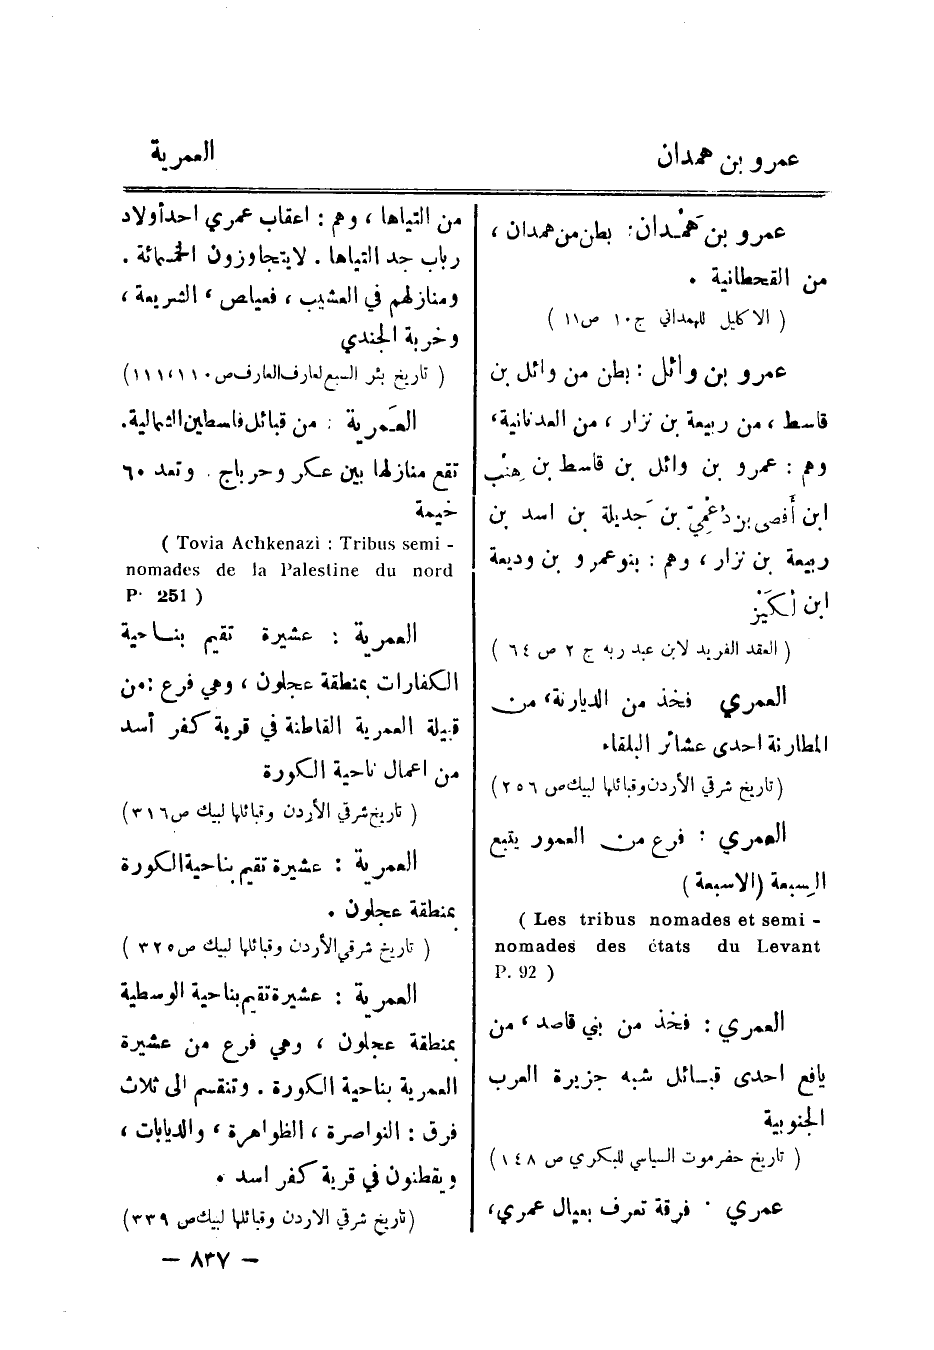 عمرو بن همدان
العمرية
عمرو بن هَمْدان: بطن من همدان ،
من القحطانية .
( الاكليل للهمداني ج١٠ ص١١ )
عمرو بن وائل : بطن من وائل بن
قاسط ، من ربيعة بن نزار ، من العدنانية،
وهم : عمرو بن وائل بن قاسط بن هِنْب
ابن أَفصى بن دُعْمِيّ بن جَديلة بن اسد بن
ربيعة بن نزار ، وهم : بنو عمرو بن وديعة
ابن لُكَيْز
( العقد الفريد لابن عبد ربه ج ٢ ص ٦٤ )
العمري فخذ من الديارنة، من
المطارنة احدى عشائر البلقاء
(تاريخ شرقي الأردن وقبائلها لبيك ص ٢٥٦)
العمري : فرع من العمور يتبع
السبعة (الاسبعة )
( Les tribus nomades et semi -
nomades des états du Levant
P. 92 )
العمري : فخذ من بني قاصد ، من
يافع احدى قبائل شبه جزيرة العرب
الجنوبية
( تاريخ حضرموت السياسي للبكري ص ١٤٨ )
عمري · فرقة تعرف بعيال عمري،
من التياها ، وهم : اعقاب عمري احد أولاد
رباب جد التياها . لا يتجاوزون الخمسمائة .
ومنازلهم في العشيب ، فعياص ، الشريعة ،
وخربة الجندي
( تاريخ بئر السبع لعارف العارف ص ١١٠ ، ١١١)
العَمرية : من قبائل فلسطين الشمالية.
تقع منازلها بين عكر وحرباج . وتعد ٦٠
خيمة
( Tovia Achkenazi : Tribus semi -
nomades de la Palestine du nord
P. 251 )
العمرية : عشيرة تقيم بناحية
الكفارات بمنطقة عجلون ، وهي فرع :من
قبيلة العمرية القاطنة في قرية كفر أسد
من اعمال ناحية الكورة
( تاريخ شرقي الأردن وقبائلها لبيك ص٣١٦)
العمرية : عشيرة تقيم بناحية الكورة
بمنطقة عجلون .
( تاريخ شرقي الأردن وقبائلها لبيك ص ٣٢٥ )
العمرية : عشيرة تقيم بناحية الوسطية
بمنطقة عجلون ، وهي فرع من عشيرة
العمرية بناحية الكورة . وتنقسم الى ثلاث
فرق : النواصرة ، الظواهرة ، والديابات ،
ويقطنون في قرية كفر اسد .
(تاريخ شرقي الاردن وقبائلها لبيك ص ٣٣٩)
— ٨٣٧ —